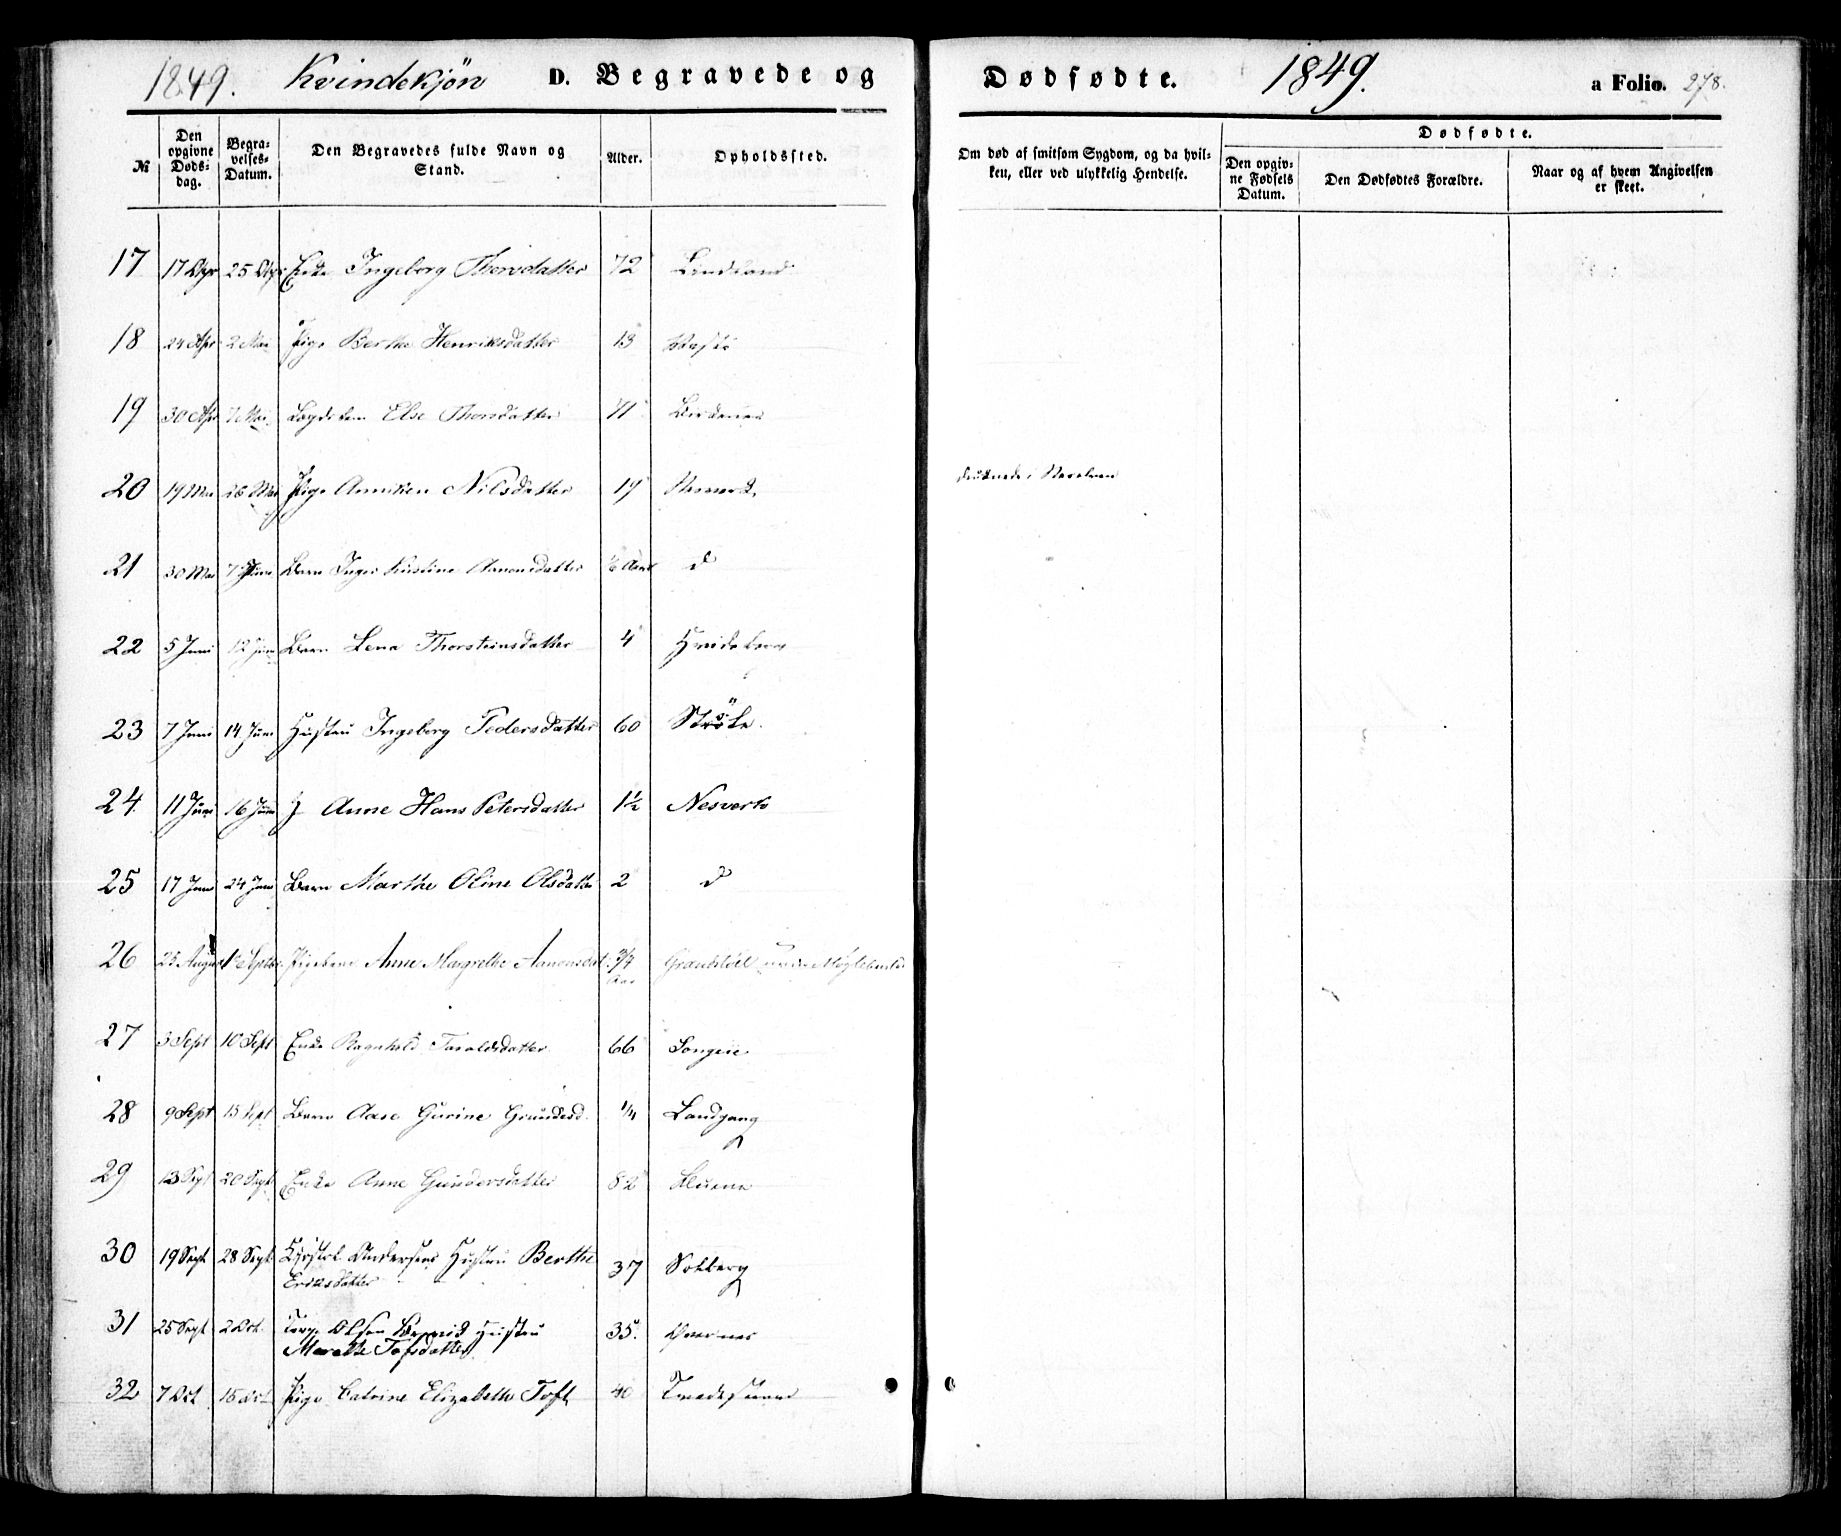 1849. Kvindekjön D. Begravede og Dødfødte. 1849. a Folio. 278.
№ Den opgivne Døds-dag. Begra-velses-Datum. Den Begravedes fulde Navn og Stand. Alder. Opholdssted. Om død af smitsom Sygdom, og da hvil-ken, eller ved ulykkelig Hendelse. Dødfødte. Den opgiv-ne Fødsels Datum. Den Dødfødtes Forældre. Naar og af hvem Angivelsen er skeet.
17 17 Apr 25 Apr Enke Ingeborg Thorsdatter 72 Lindland
18 24 Apr 2 Mai Pige Berthe Henriksdatter 13
19 30 Apr Mai Else Thorsdatter 71
20 19 Mai 26 Mai Pige Anniken Nilsdatter 19 druknede i
21 30 Mai 7 Juni Barn Inger Kirstine Aanonsdatter d
22 5 Juni 12 Juni Barn Lena Thorsteinsdatter 4 Hvideberg
23 7 Juni 14 Juni Hustru Ingeborg Pedersdatter 60 Ströke.
24. 11 Juni 16 Juni Anne Hans Petersdatter 1½ Nesverk
25 17 Juni 24 Juni Barn Marthe Oline Olsdatter 2 d
26 25 August Septbr. Pigebarn Anne Margrethe Aanonsdat. 3/4 Aar
27 3 Sept 10 Sept Enke Ragnhild Taraldsdatter 66 Songeie
28 9 Sept 15 Sept Barn Aase Gurine Gundersd. 1/4 Landgang
29 13 Sept 20 Sept Enke Anne Gundersdatter 82
30 19 Sept 28 Sept Andersens Hustru Berthe 37 Solberg
Eriksdatter
31 25 Sept 2 Oct. Terje Olsen Hustru 35.
Marethe Tofsdatter
32 7 Oct 15 Oct Pige Catrine Elizabeth Toft 40 Tvedestrand